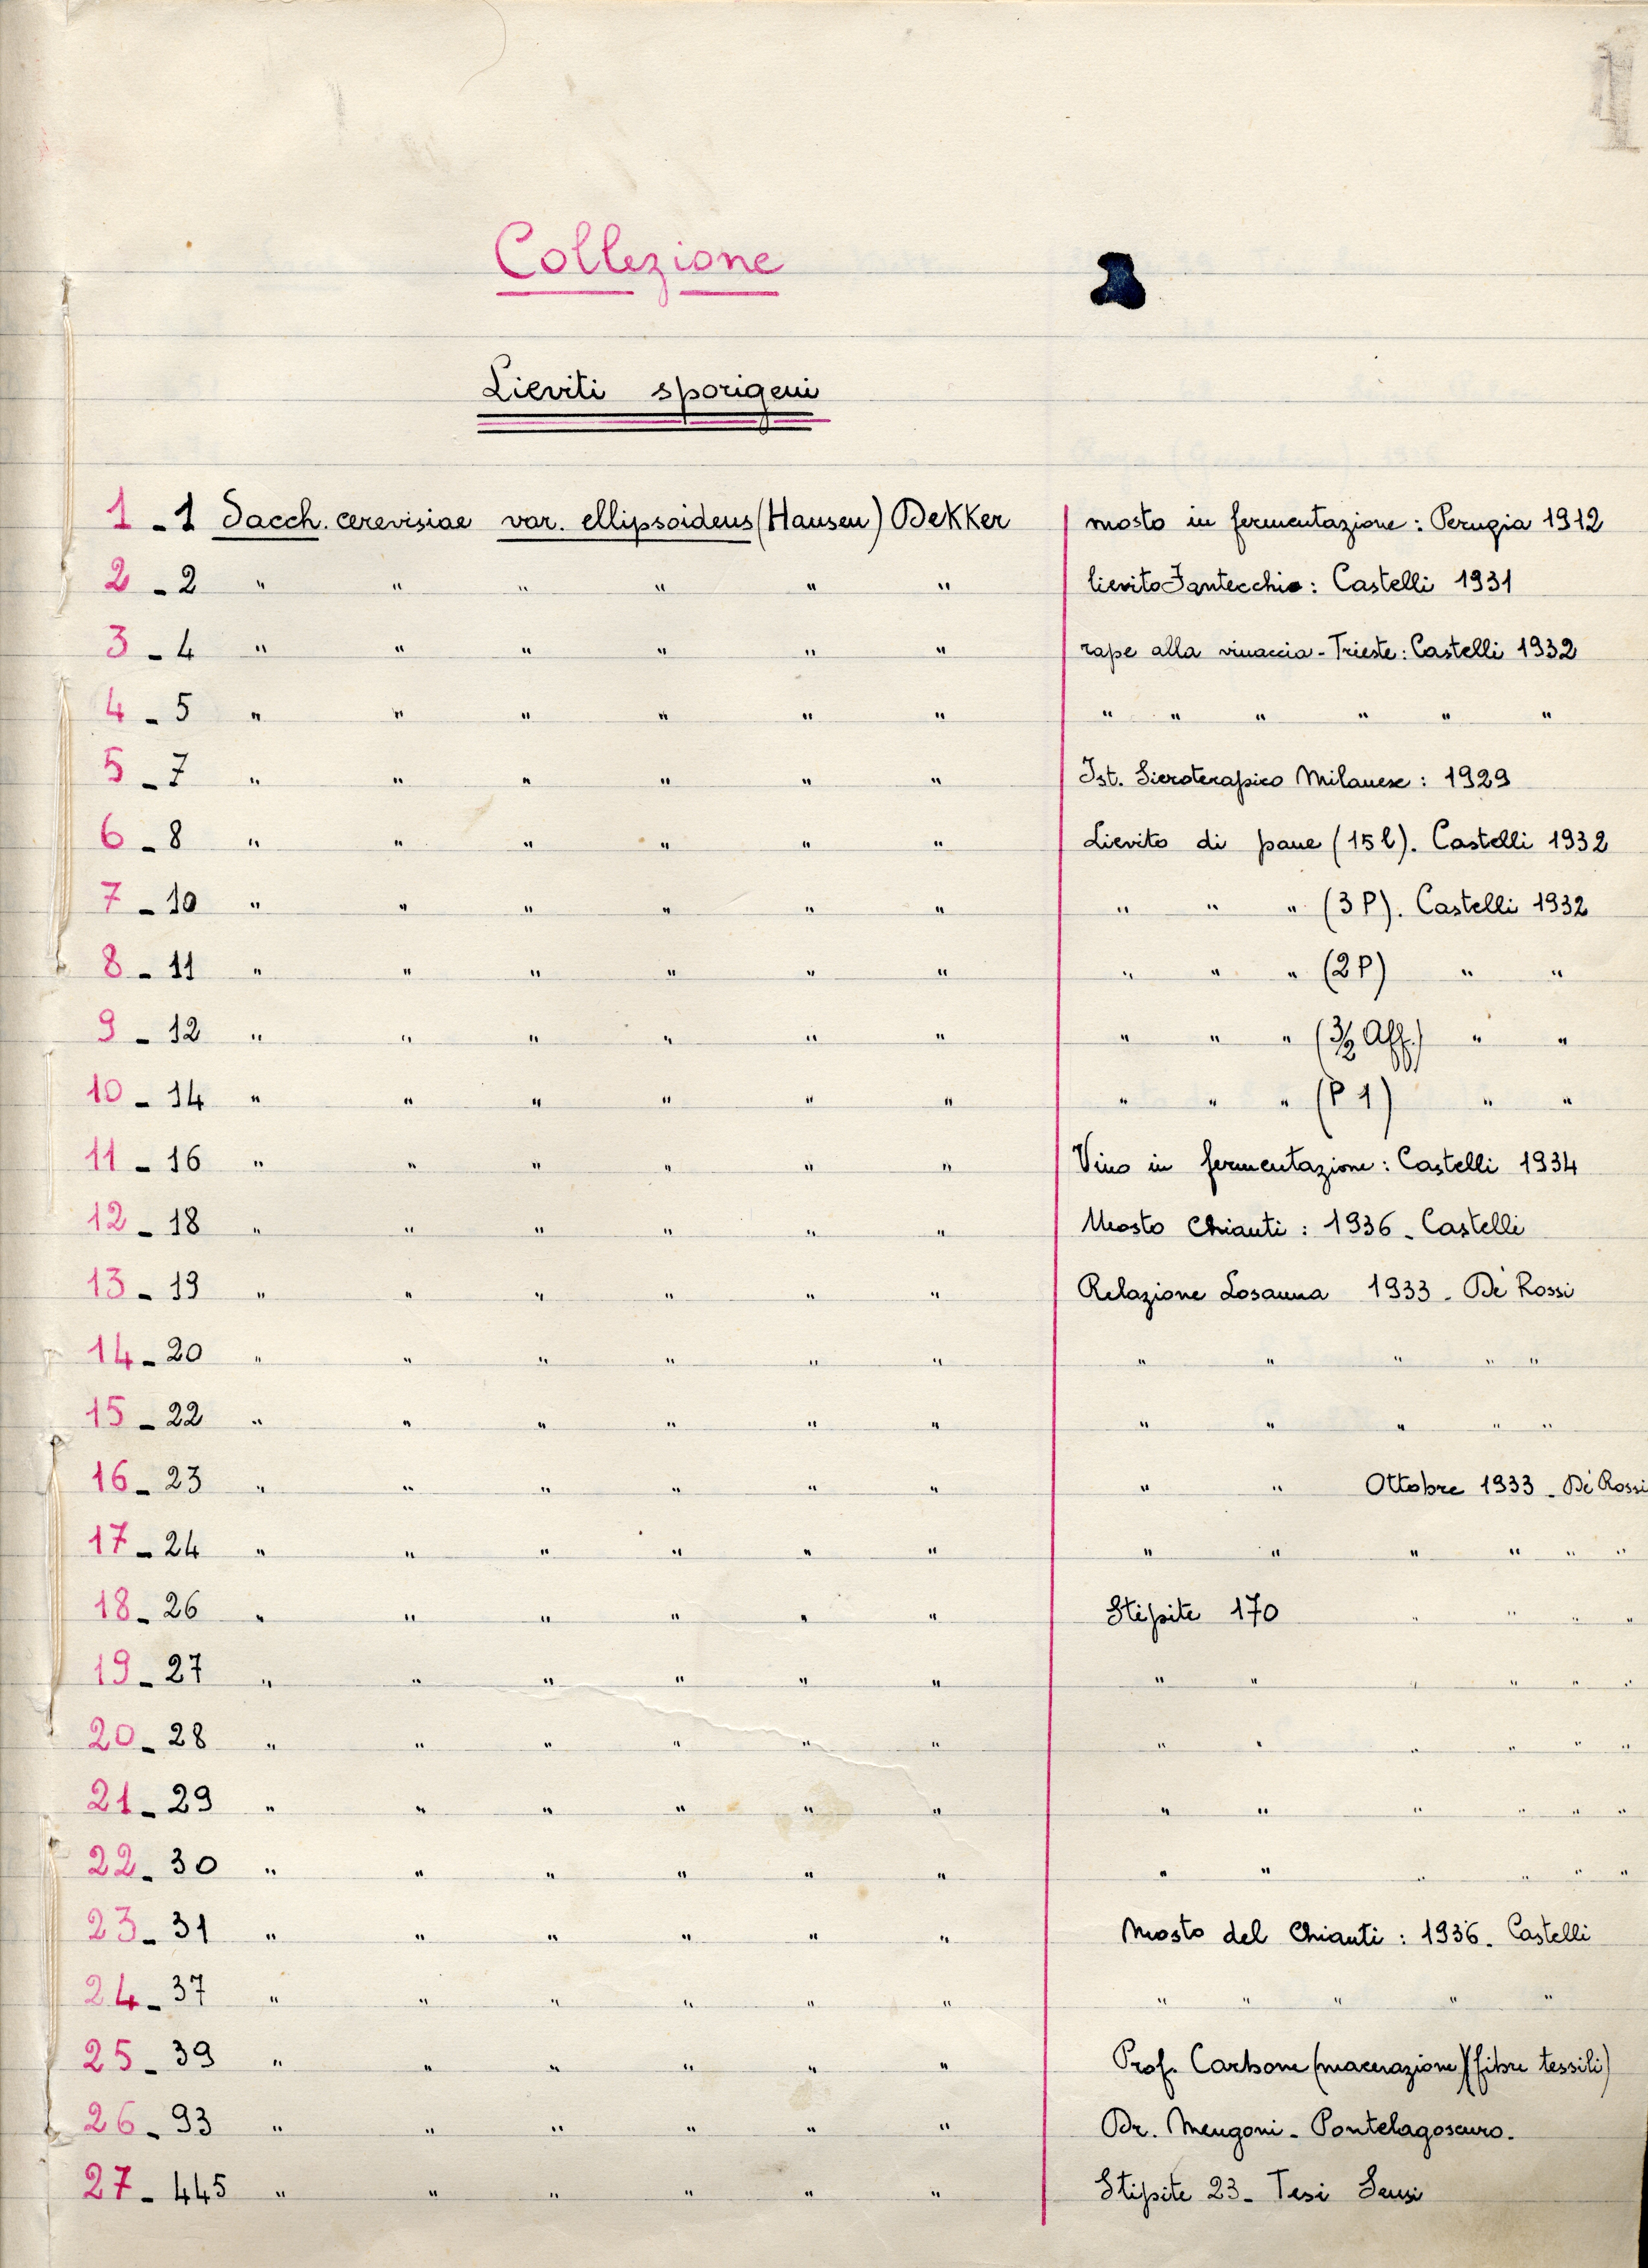 Collezione
Lieviti sporigeni
1 - 1 Sacch. cerevisiae var. ellipsoideus (Hansen) Dekker mosto in fermentazione : Perugia 1912
2 - 2 " " " " " " lievito Fantecchio : Castelli 1931
3 - 4 " " " " " " rape alla vinaccia - Trieste : Castelli 1932
4 - 5 " " " " " " " " " " " "
5 - 7 " " " " " " Ist. Sieroterapico Milanese : 1929
6 - 8 " " " " " " Lievito di pane (15 l). Castelli 1932
7 - 10 " " " " " " " " " (3 P). Castelli 1932
8 - 11 " " " " " " " " " (2 P) " "
9 - 12 " " " " " " " " " (3/2 Aff.) " "
10 - 14 " " " " " " " " " (P 1) " "
11 - 16 " " " " " " Vino in fermentazione : Castelli 1934
12 - 18 " " " " " " Mosto Chianti : 1936 - Castelli
13 - 19 " " " " " " Relazione Losanna 1933 - De' Rossi
14 - 20 " " " " " " " " " " "
15 - 22 " " " " " " " " " " "
16 - 23 " " " " " " " " Ottobre 1933 - De' Rossi
17 - 24 " " " " " " " " " " " "
18 - 26 " " " " " " Stipite 170 " " " "
19 - 27 " " " " " " " " " " " "
20 - 28 " " " " " " " " " " " "
21 - 29 " " " " " " " " " " " "
22 - 30 " " " " " " " " " " " "
23 - 31 " " " " " " Mosto del Chianti : 1936 - Castelli
24 - 37 " " " " " " " " " " "
25 - 39 " " " " " " Prof. Carbone (macerazione) (fibre tessili)
26 - 93 " " " " " " Dr. Mengoni - Pontelagoscuro.
27 - 445 " " " " " " Stipite 23 - Tesi Sensi